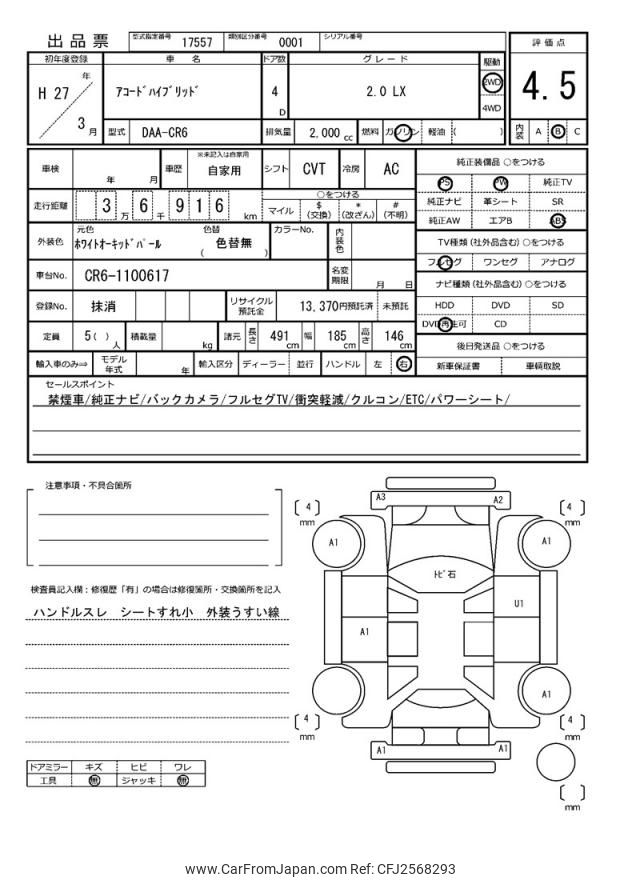 出品票 型式指定番号 17557 類別区分番号 0001 シリアル番号
初年度登録 車名 ドア数 グレード 駆動 評価点
H 27 年 3 月 アコードハイブリッド 4 D 2.0 LX 2WD 4WD 4.5
型式 DAA-CR6 排気量 2,000 cc 燃料 ガソリン 軽油 ( ) 内装 A B C
車検 年 月 車歴 ※未記入は自家用 自家用 シフト CVT 冷房 AC
走行距離 3 万 6 千 9 1 6 km ○をつける マイル $ (交換) * (改ざん) # (不明)
外装色 元色 ホワイトオーキッドパール 色替 ( 色替無 ) カラーNo. 内装色
車台No. CR6-1100617 名変期限 月 日
登録No. 抹消 リサイクル預託金 13,370円預託済 未預託
定員 5 ( ) 人 積載量 kg 諸元 長さ 491 cm 幅 185 cm 高さ 146 cm
輸入車のみ⇒ モデル年式 年 輸入区分 ディーラー 並行 ハンドル 左 右
純正装備品 ○をつける
PS PW 純正TV
純正ナビ 革シート SR
純正AW エアB ABS
TV種類 (社外品含む) ○をつける
フルセグ ワンセグ アナログ
ナビ種類 (社外品含む) ○をつける
HDD DVD SD
DVD再生可 CD
後日発送品 ○をつける
新車保証書 車輌取説
セールスポイント
禁煙車/純正ナビ/バックカメラ/フルセグTV/衝突軽減/クルコン/ETC/パワーシート/
注意事項・不具合箇所
検査員記入欄：修復歴「有」の場合は修復箇所・交換箇所を記入
ハンドルスレ シートすれ小 外装うすい線
ドアミラー キズ ヒビ ワレ
工具 無 ジャッキ 無
A3 A2
4 mm 4 mm
A1 A1
トビ石
U1
A1
A1
4 mm 4 mm
A1 A1
mm
www.CarFromJapan.com Ref: CFJ2568293